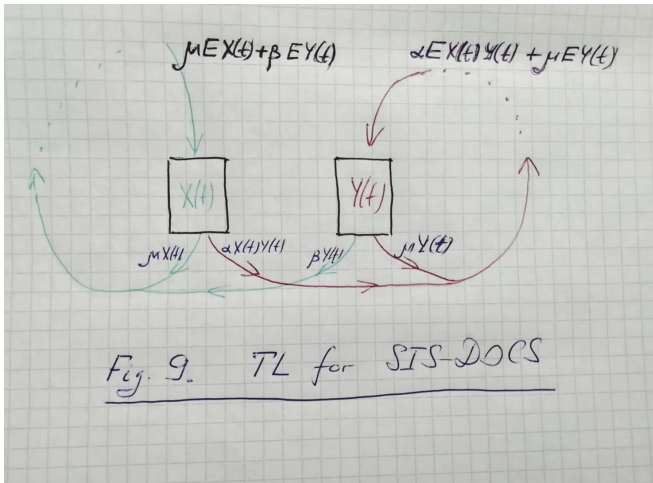 μEX(t)+βEY(t)
αEX(t)Y(t)+μEY(t)
X(t)
Y(t)
μX(t)
αX(t)Y(t)
βY(t)
μY(t)
Fig. 9. TL for SIS-DOCS